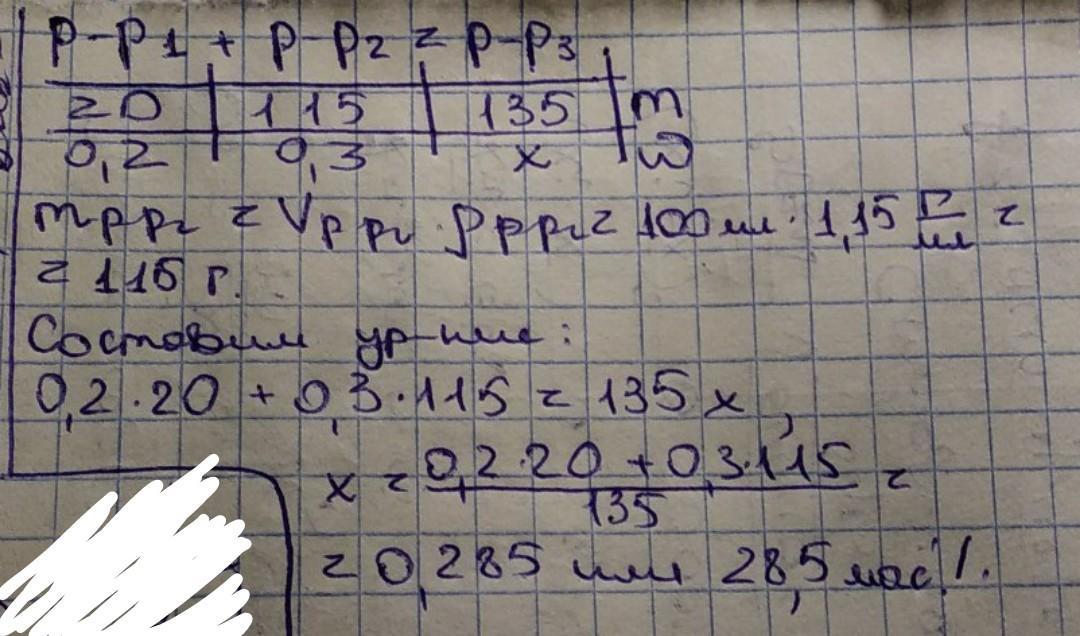 р-р1 + р-р2 = р-р3
20 | 115 | 135 | m
0,2 | 0,3 | x | ω
mрр2 = Vрр2 · ρрр2 = 100 мл · 1,15 г/мл =
= 115 г.
Составим ур-ние:
0,2 · 20 + 0,3 · 115 = 135 x,
x = (0,2·20 + 0,3·115)/135 =
= 0,285 или 28,5 мас%.